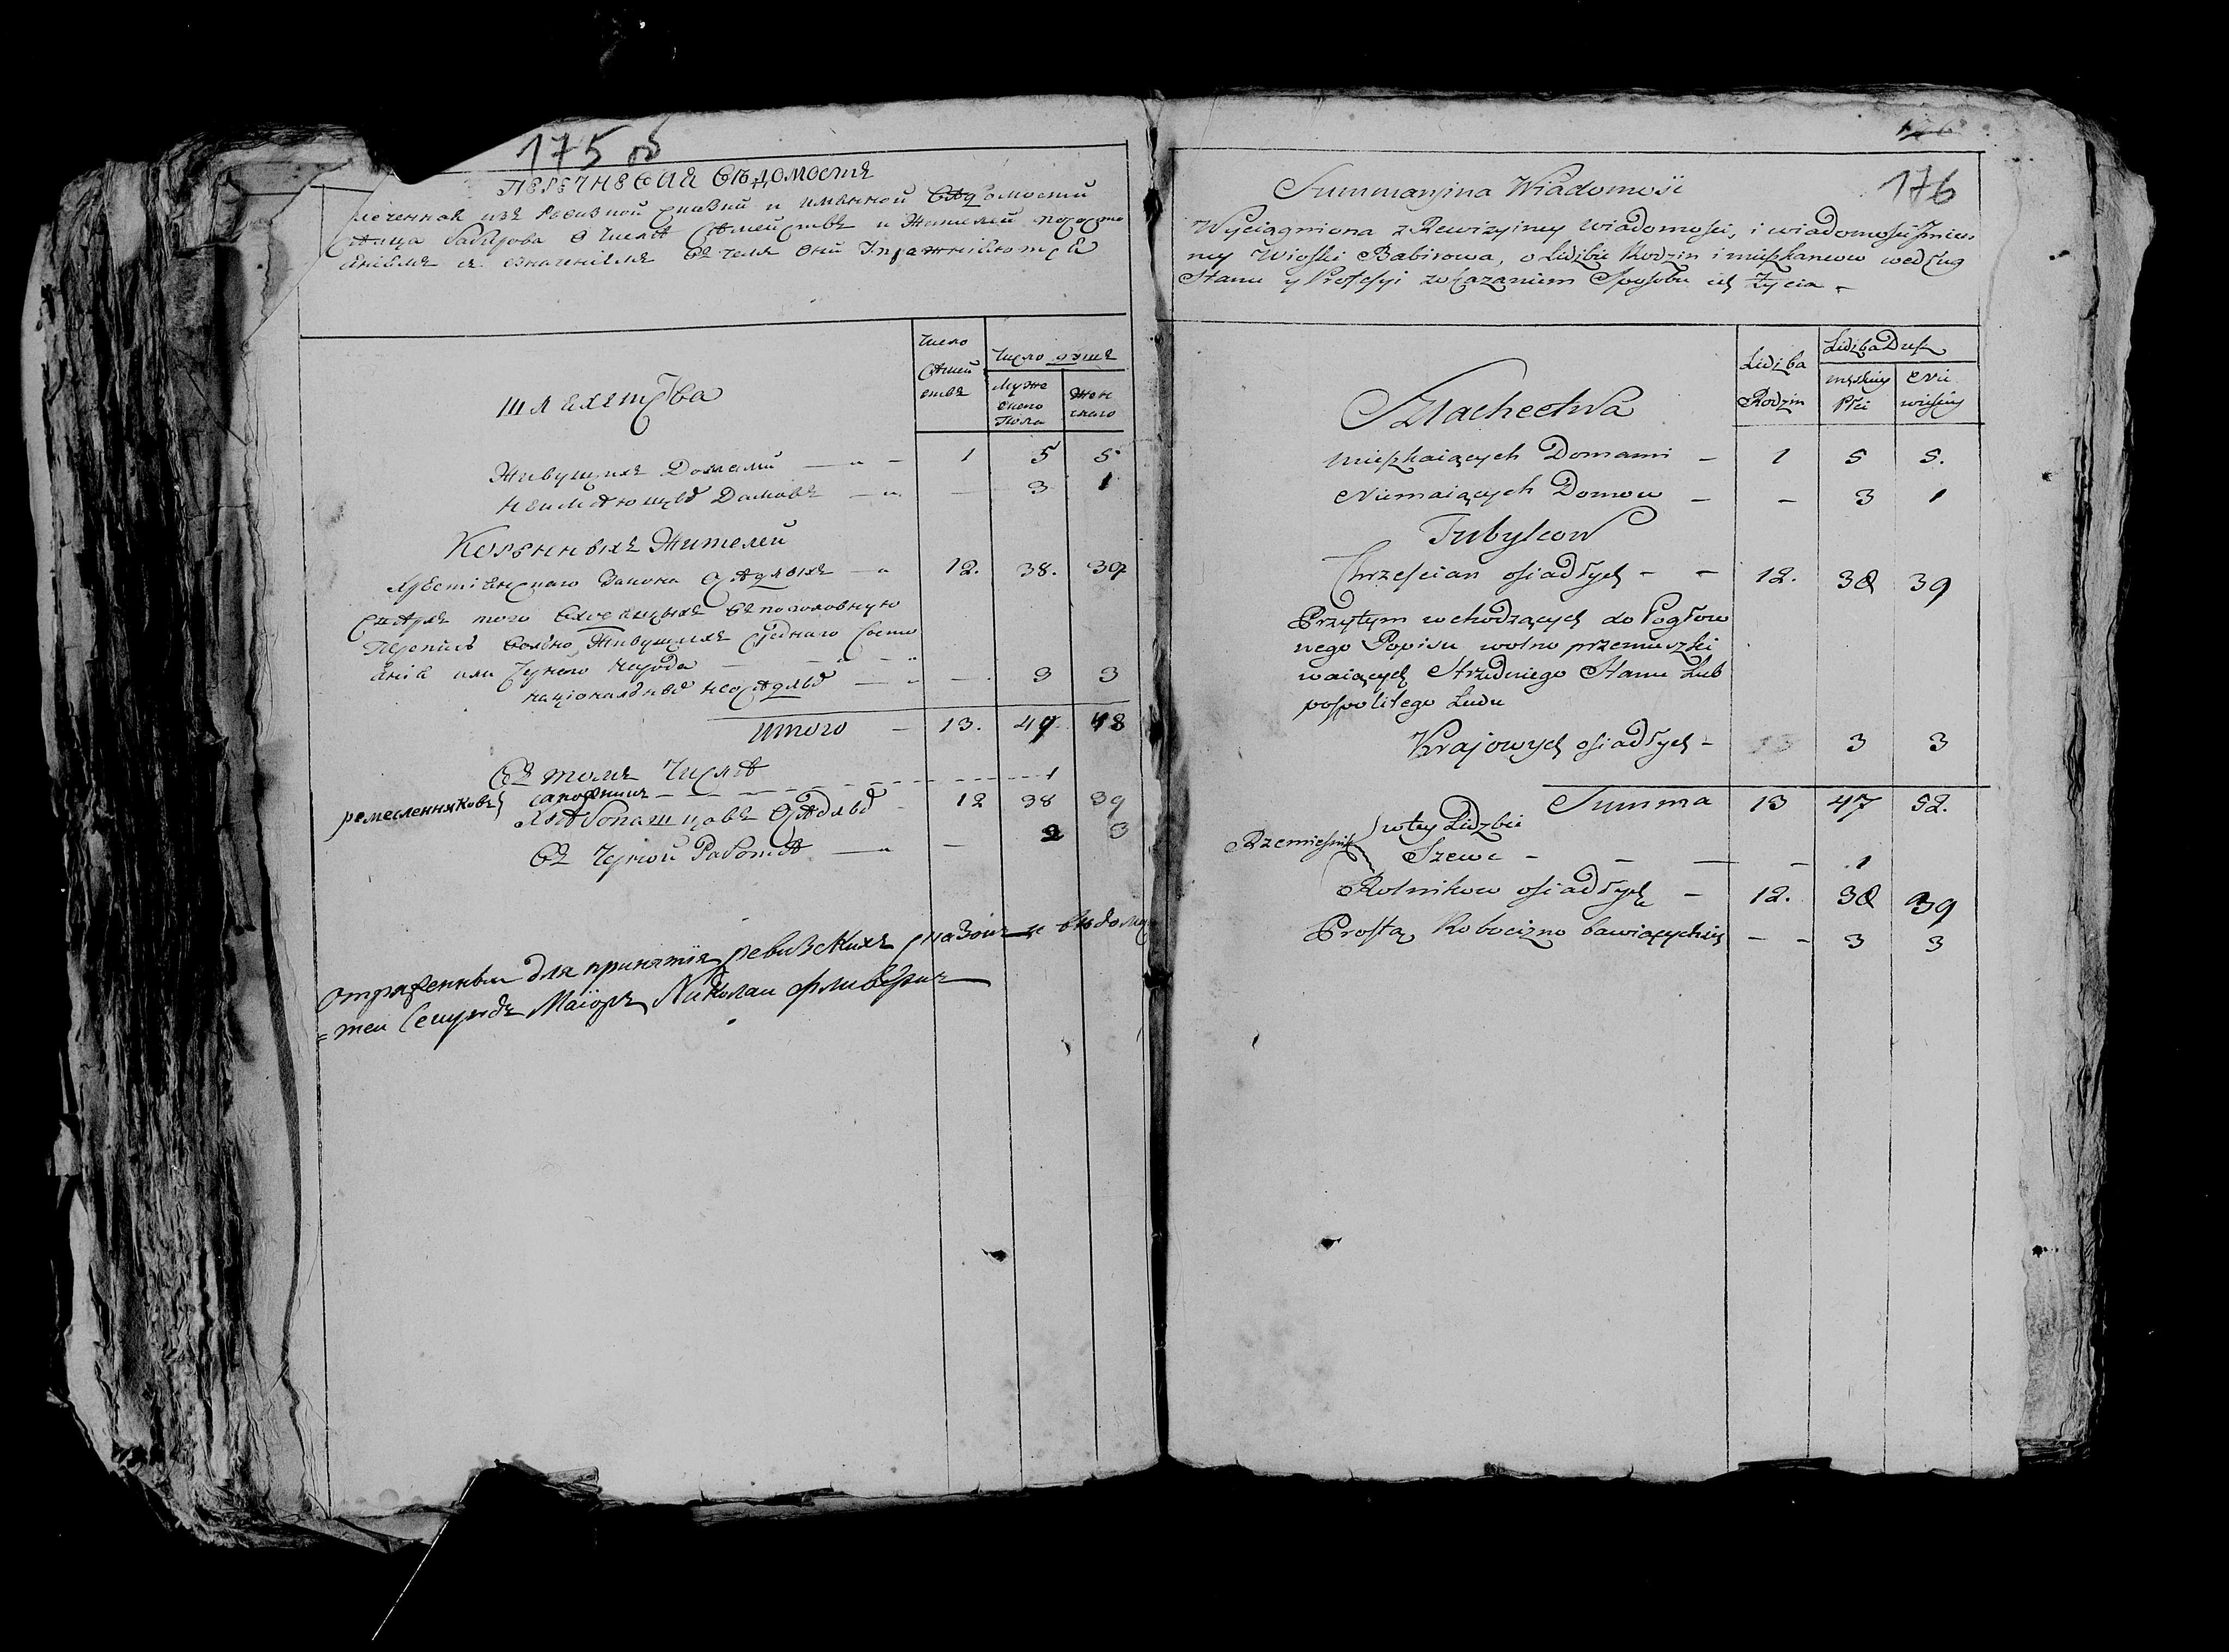 175 об
Перечневая вѣдомость
изъ ревизской сказки и имянной вѣдомости
Бабирова о числѣ семействъ и жителей
въ чемъ они упражняются
Число
Семей
ствъ
Число душъ
Муже
скаго
пола
Жен
скаго
Шляхетства
Живущихъ Домами — „ — 1 5 5
неимѣющихъ Домовъ — „ — 3 1
Коренныхъ Жителей
Христіанскаго Закона осѣдлыхъ — „ 12. 38. 39
Сверхъ того входящихъ въ поголовную
Перепись вольно Живущихъ средняго состо
янія или чернаго народа
націонални неосѣдлыхъ — „ — 3 3
Итого — 13. 49 48
Въ томъ числѣ
ремесленниковъ сапожникъ 1
хлѣбопашцовъ осѣдлыхъ 12 38 39
въ черной Работѣ — „ — 3 3
отряженны для принятія ревизскихъ сказокъ и вѣдомос
=теи Секундъ Маіоръ Николаи
176
176
Summaryina Wiadomość
Wyciągniona z Rewizyiney Wiadomości, i wiadomości Imien
ney Wioski Babirowa, o Lidzbie Rodzin i mieszkancow według
Stanu y Professyi wskazaniem Sposobu ich Życia .
Lidzba
Rodzin
Lidzba Dusz
męskiey
Płci
Nie
wieściey
Szlachectwa
mieszkaiących Domami — 1 5 5.
Niemaiących Domow — — 3 1
Tubylcow
Chrzescian osiadłych — — 12. 38 39
Przytym wchodzących do Pogłow
nego Popisu wolno przemieszki
waiących Strzedniego Stanu Lub
pospolitego Ludu
Krajowych osiadłych — 3 3
Summa 13 47 52.
Rzemieśnik w tey Lidzbie
Szewc — — — — 1
Rolnikow osiadłych — 12. 38 39
Prostą Robocizno bawiących się — — 3 3